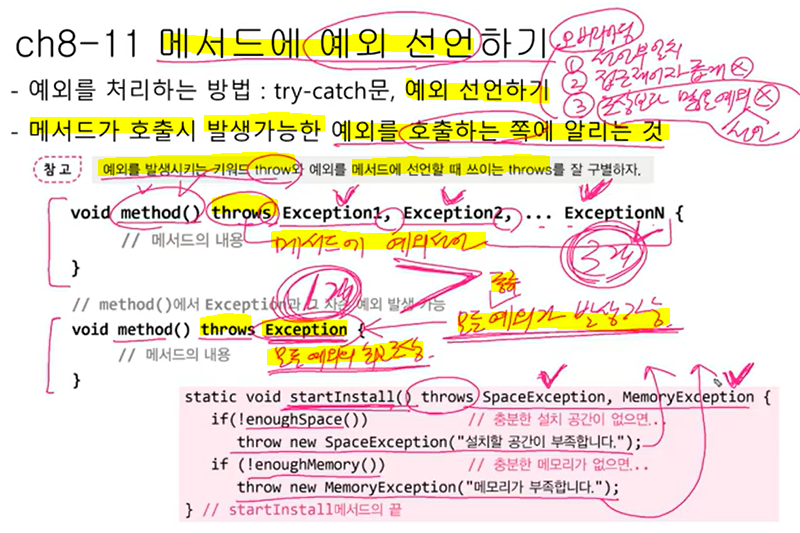 ch8-11 메서드에 예외 선언하기
오버라이딩
① 선언부 일치
② 접근제어자 좁게 X
③ 조상보다 많은 예외 X
선언
- 예외를 처리하는 방법 : try-catch문, 예외 선언하기
- 메서드가 호출시 발생가능한 예외를 호출하는 쪽에 알리는 것
참고 예외를 발생시키는 키워드 throw와 예외를 메서드에 선언할 때 쓰이는 throws를 잘 구별하자.
void method() throws Exception1, Exception2, ... ExceptionN {
// 메서드의 내용
메서드에 예외선언
3개
}
1개
// method()에서 Exception과 그 자손 예외 발생 가능
void method() throws Exception {
모든 예외가 발생가능
// 메서드의 내용
모든 예외의 최고조상.
}
static void startInstall() throws SpaceException, MemoryException {
if(!enoughSpace()) // 충분한 설치 공간이 없으면...
throw new SpaceException("설치할 공간이 부족합니다.");
if (!enoughMemory()) // 충분한 메모리가 없으면...
throw new MemoryException("메모리가 부족합니다.");
} // startInstall메서드의 끝